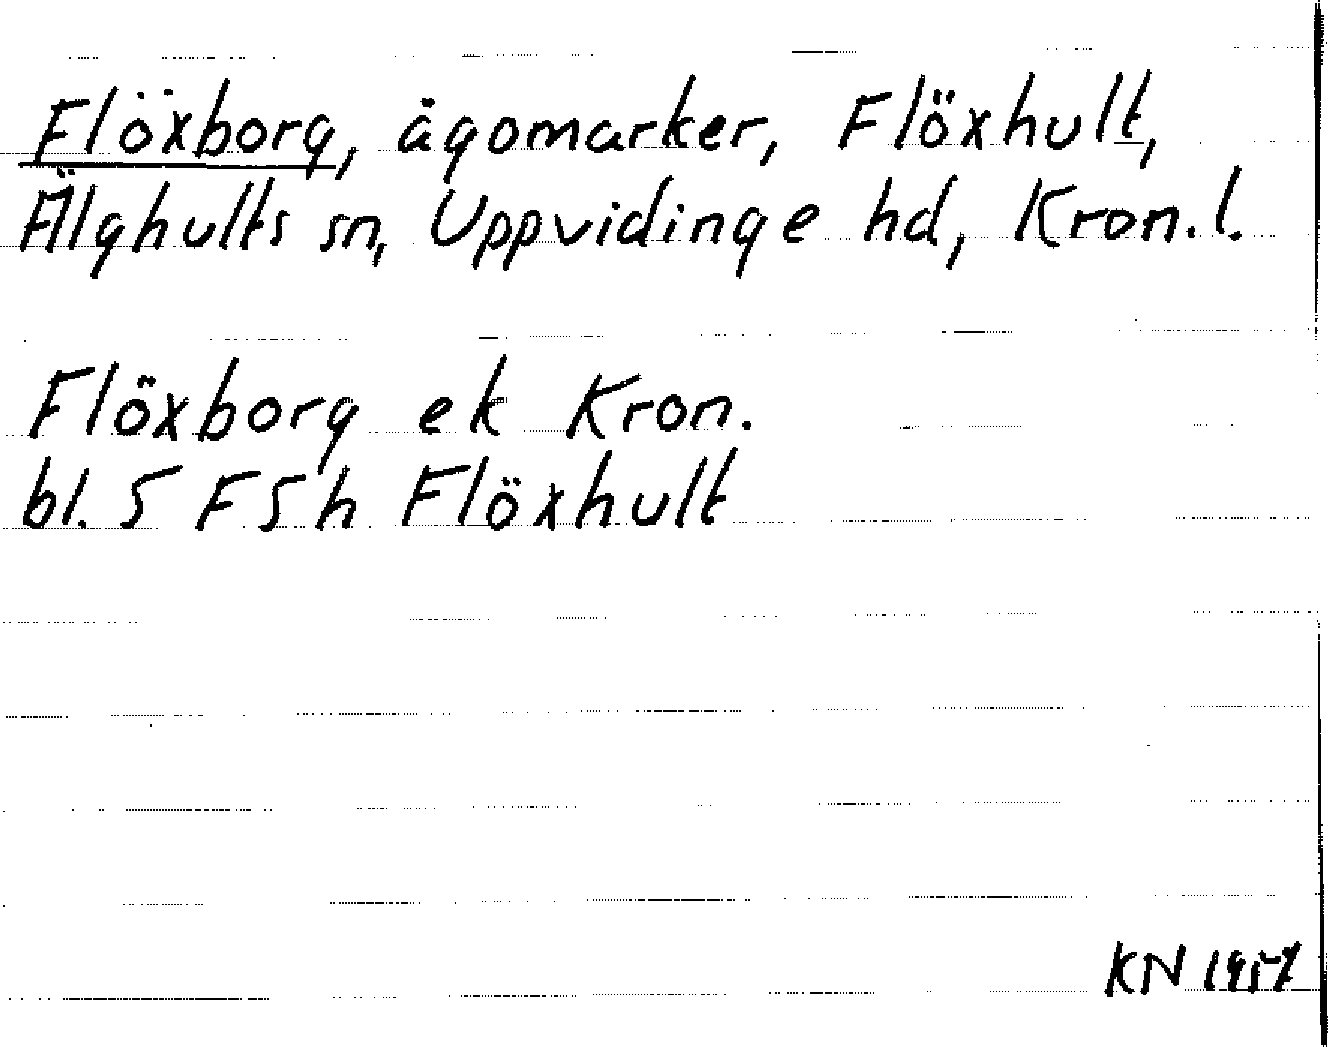 Flöxborg, ägomarker, Flöxhult,
Älghults sn, Uppvidinge hd, Kron.l.
Flöxborg ek Kron.
bl. 5 F5h Flöxhult
KN 1957